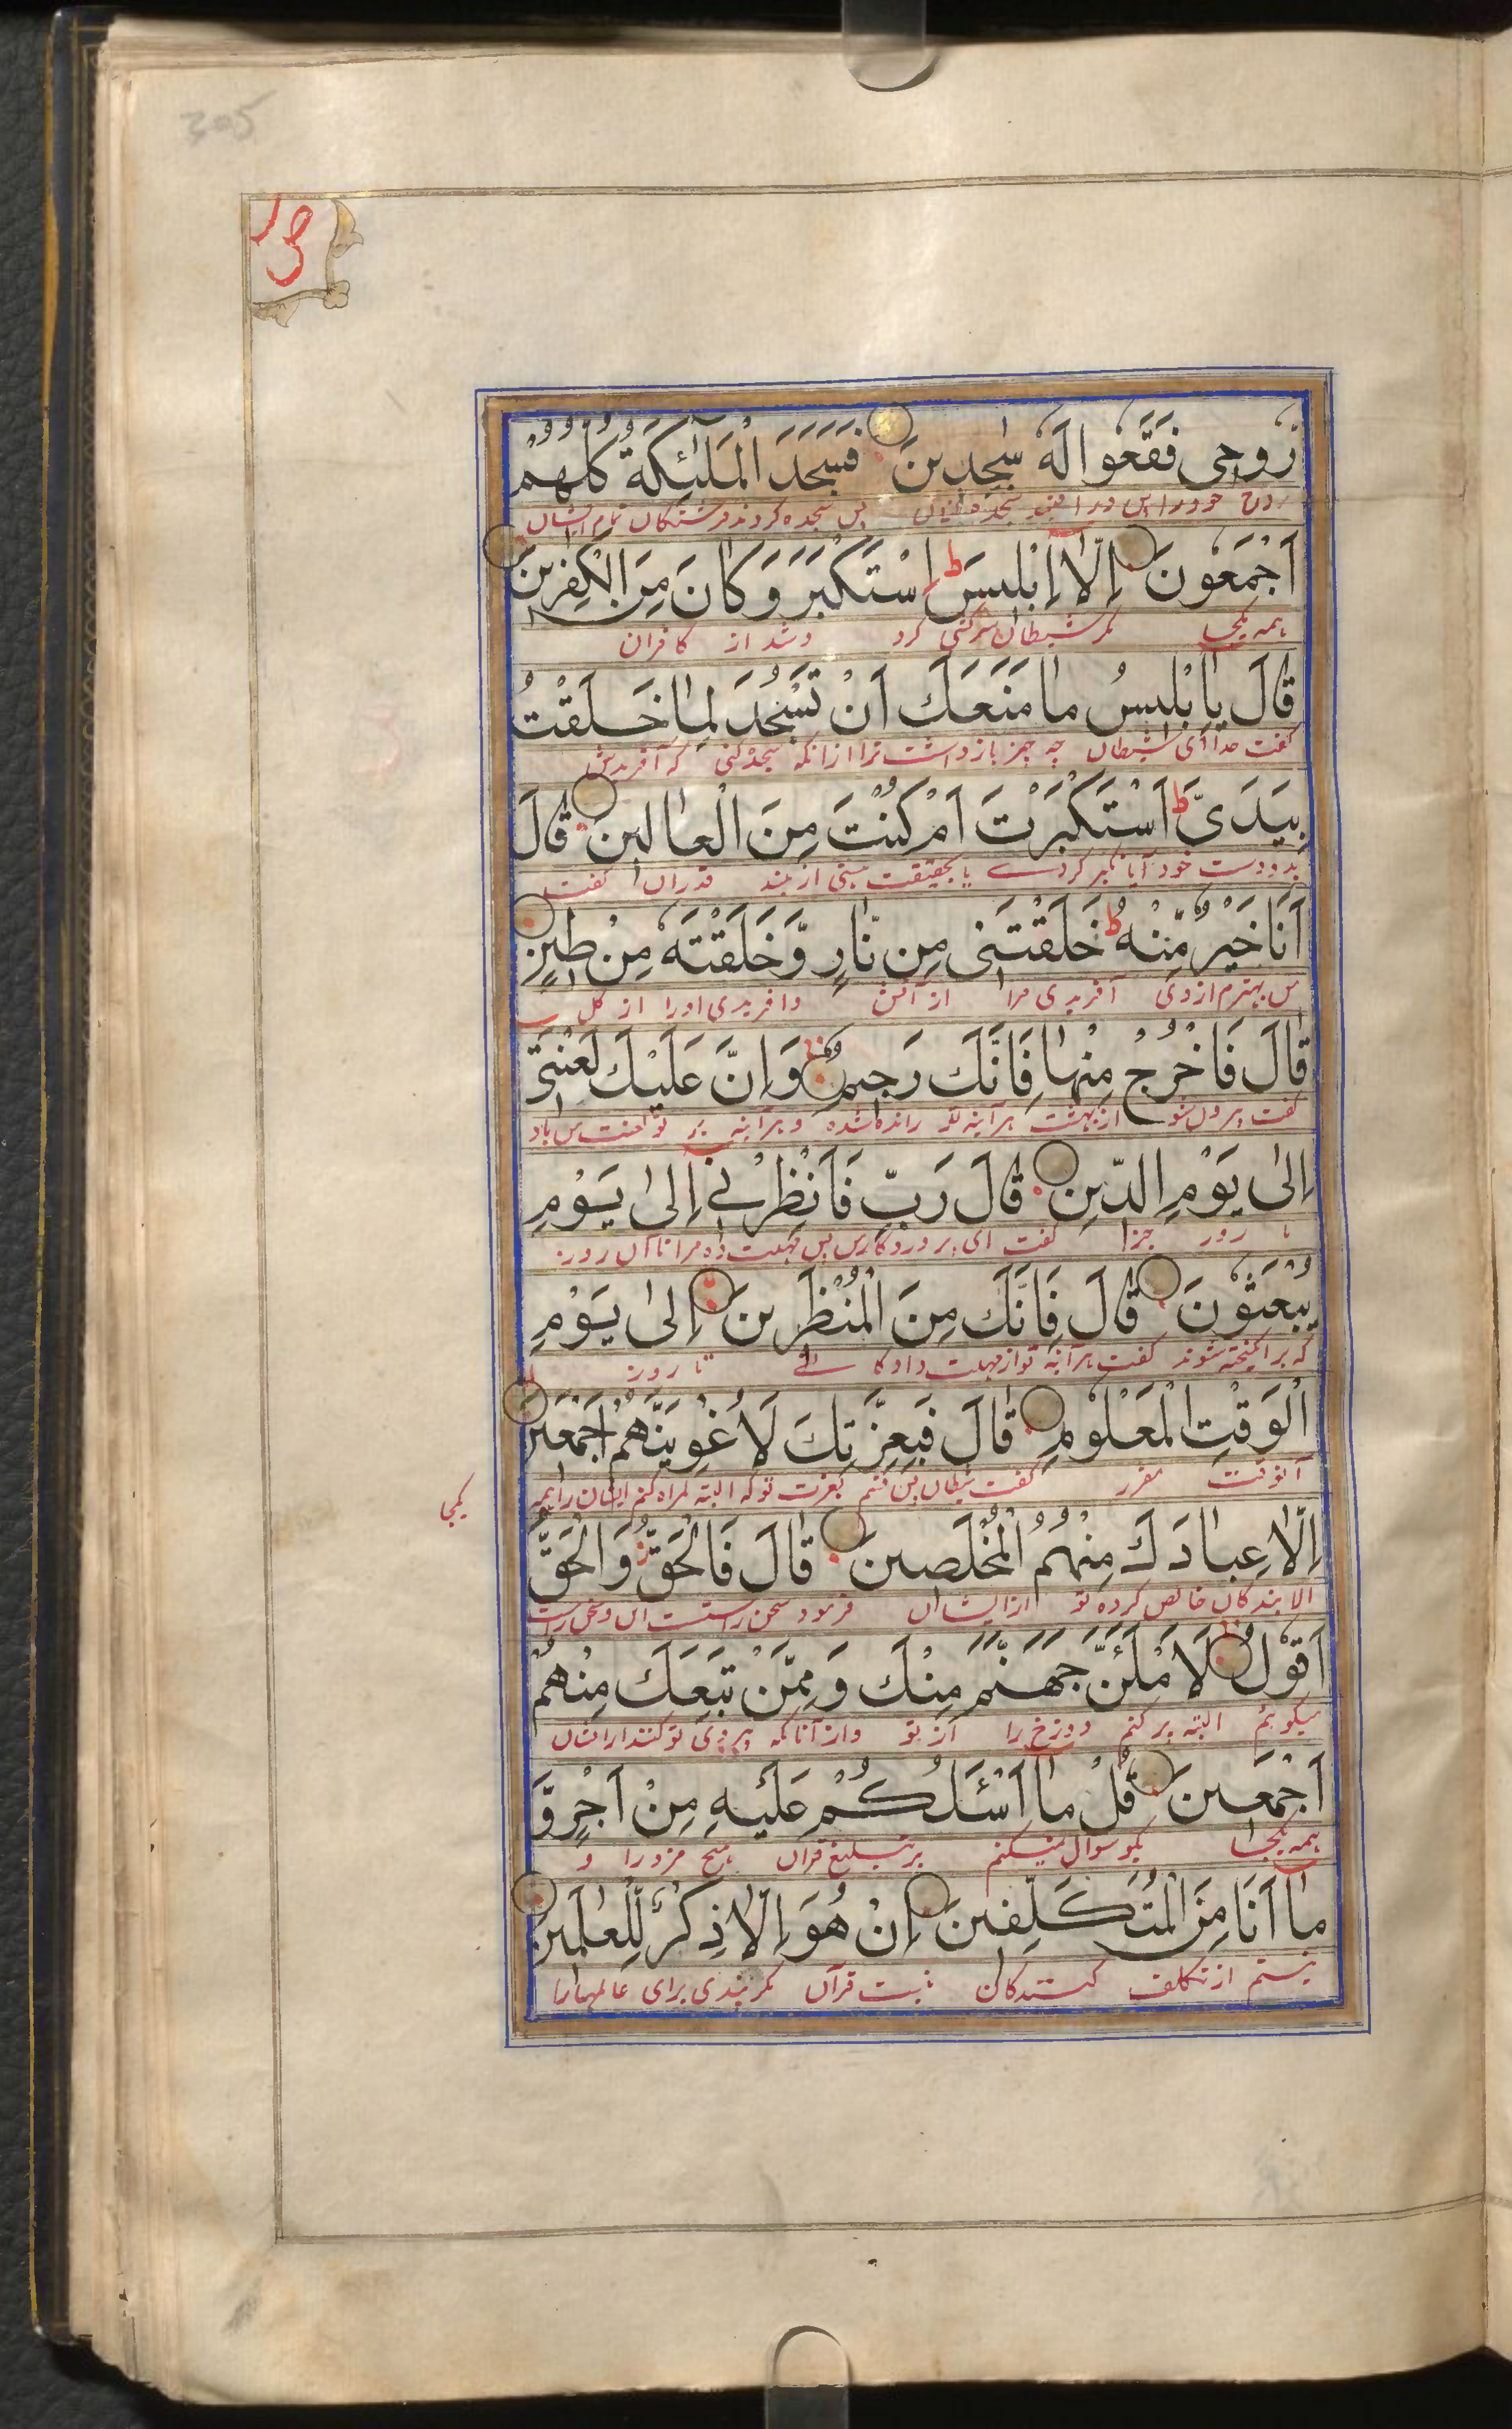 305
ص
رُوحِى فَقَعُوا لَهُ سٰجِدِينَ فَسَجَدَ الْمَلٰئِكَةُ كُلُّهُمْ
روح خود را پس سجده پس سجده کردند فرشتگان تمام ایشان
اَجْمَعُونَ اِلَّا اِبْلِيسَ ط اِسْتَكْبَرَ وَكَانَ مِنَ الْكٰفِرِينَ
همه یکجا مگر شیطان سرکشی کرد و شد از کافران
قَالَ يَا اِبْلِيسُ مَا مَنَعَكَ اَنْ تَسْجُدَ لِمَا خَلَقْتُ
گفت خدا ای شیطان چه چیز باز داشت ترا از انکه سجده کنی که آفریدش
بِيَدَىَّ ط اَسْتَكْبَرْتَ اَمْ كُنْتَ مِنَ الْعَالِينَ قَالَ
بدو دست خود آیا تکبر کردے یا بحقیقت از بلند قدران گفت
اَنَا خَيْرٌ مِّنْهُ ط خَلَقْتَنِى مِن نَّارٍ وَّخَلَقْتَهُ مِنْ طِينٍ
من بهترم از وی آفریدی مرا از آتش و افریدی اورا از گل
قَالَ فَاخْرُجْ مِنْهَا فَاِنَّكَ رَجِيمٌ وَاِنَّ عَلَيْكَ لَعْنَتِى
گفت بیرون شو از بهشت هرآینه تو رانده شده و هرآینه بر تو لعنت من باد
اِلٰى يَوْمِ الدِّينِ قَالَ رَبِّ فَاَنْظِرْنِى اِلٰى يَوْمِ
تا روز جزا گفت ای پروردگار من پس مهلت ده مرا تا آن روز
يُبْعَثُونَ قَالَ فَاِنَّكَ مِنَ الْمُنْظَرِينَ اِلٰى يَوْمِ
که برانگیخته شوند گفت هرآینه تو از مهلت داد تا روز
الْوَقْتِ الْمَعْلُومِ قَالَ فَبِعِزَّتِكَ لَاُغْوِيَنَّهُمْ اَجْمَعِينَ
آنوقت مقرر گفت شیطان پس قسم بعزت تو که البته گمراه کنم ایشان را همه
یکجا
اِلَّا عِبَادَكَ مِنْهُمُ الْمُخْلَصِينَ قَالَ فَالْحَقُّ وَالْحَقَّ
الا بندگان خالص کرده تو از ایشان فرمود سخن راست
اَقُولُ لَاَمْلَئَنَّ جَهَنَّمَ مِنْكَ وَمِمَّنْ تَبِعَكَ مِنْهُمْ
میگویم البته پر کنم دوزخ را از تو و از آنانکه پیروی تو کنند از ایشان
اَجْمَعِينَ قُلْ مَا اَسْئَلُكُمْ عَلَيْهِ مِنْ اَجْرٍ وَّ
همه یکجا بگو سوال نمیکنم بر تبلیغ قرآن هیچ مزد را و
مَا اَنَا مِنَ الْمُتَكَلِّفِينَ اِنْ هُوَ اِلَّا ذِكْرٌ لِّلْعٰلَمِينَ
نیستم از تکلف کنندگان نیست قرآن مگر پندی برای عالمها را